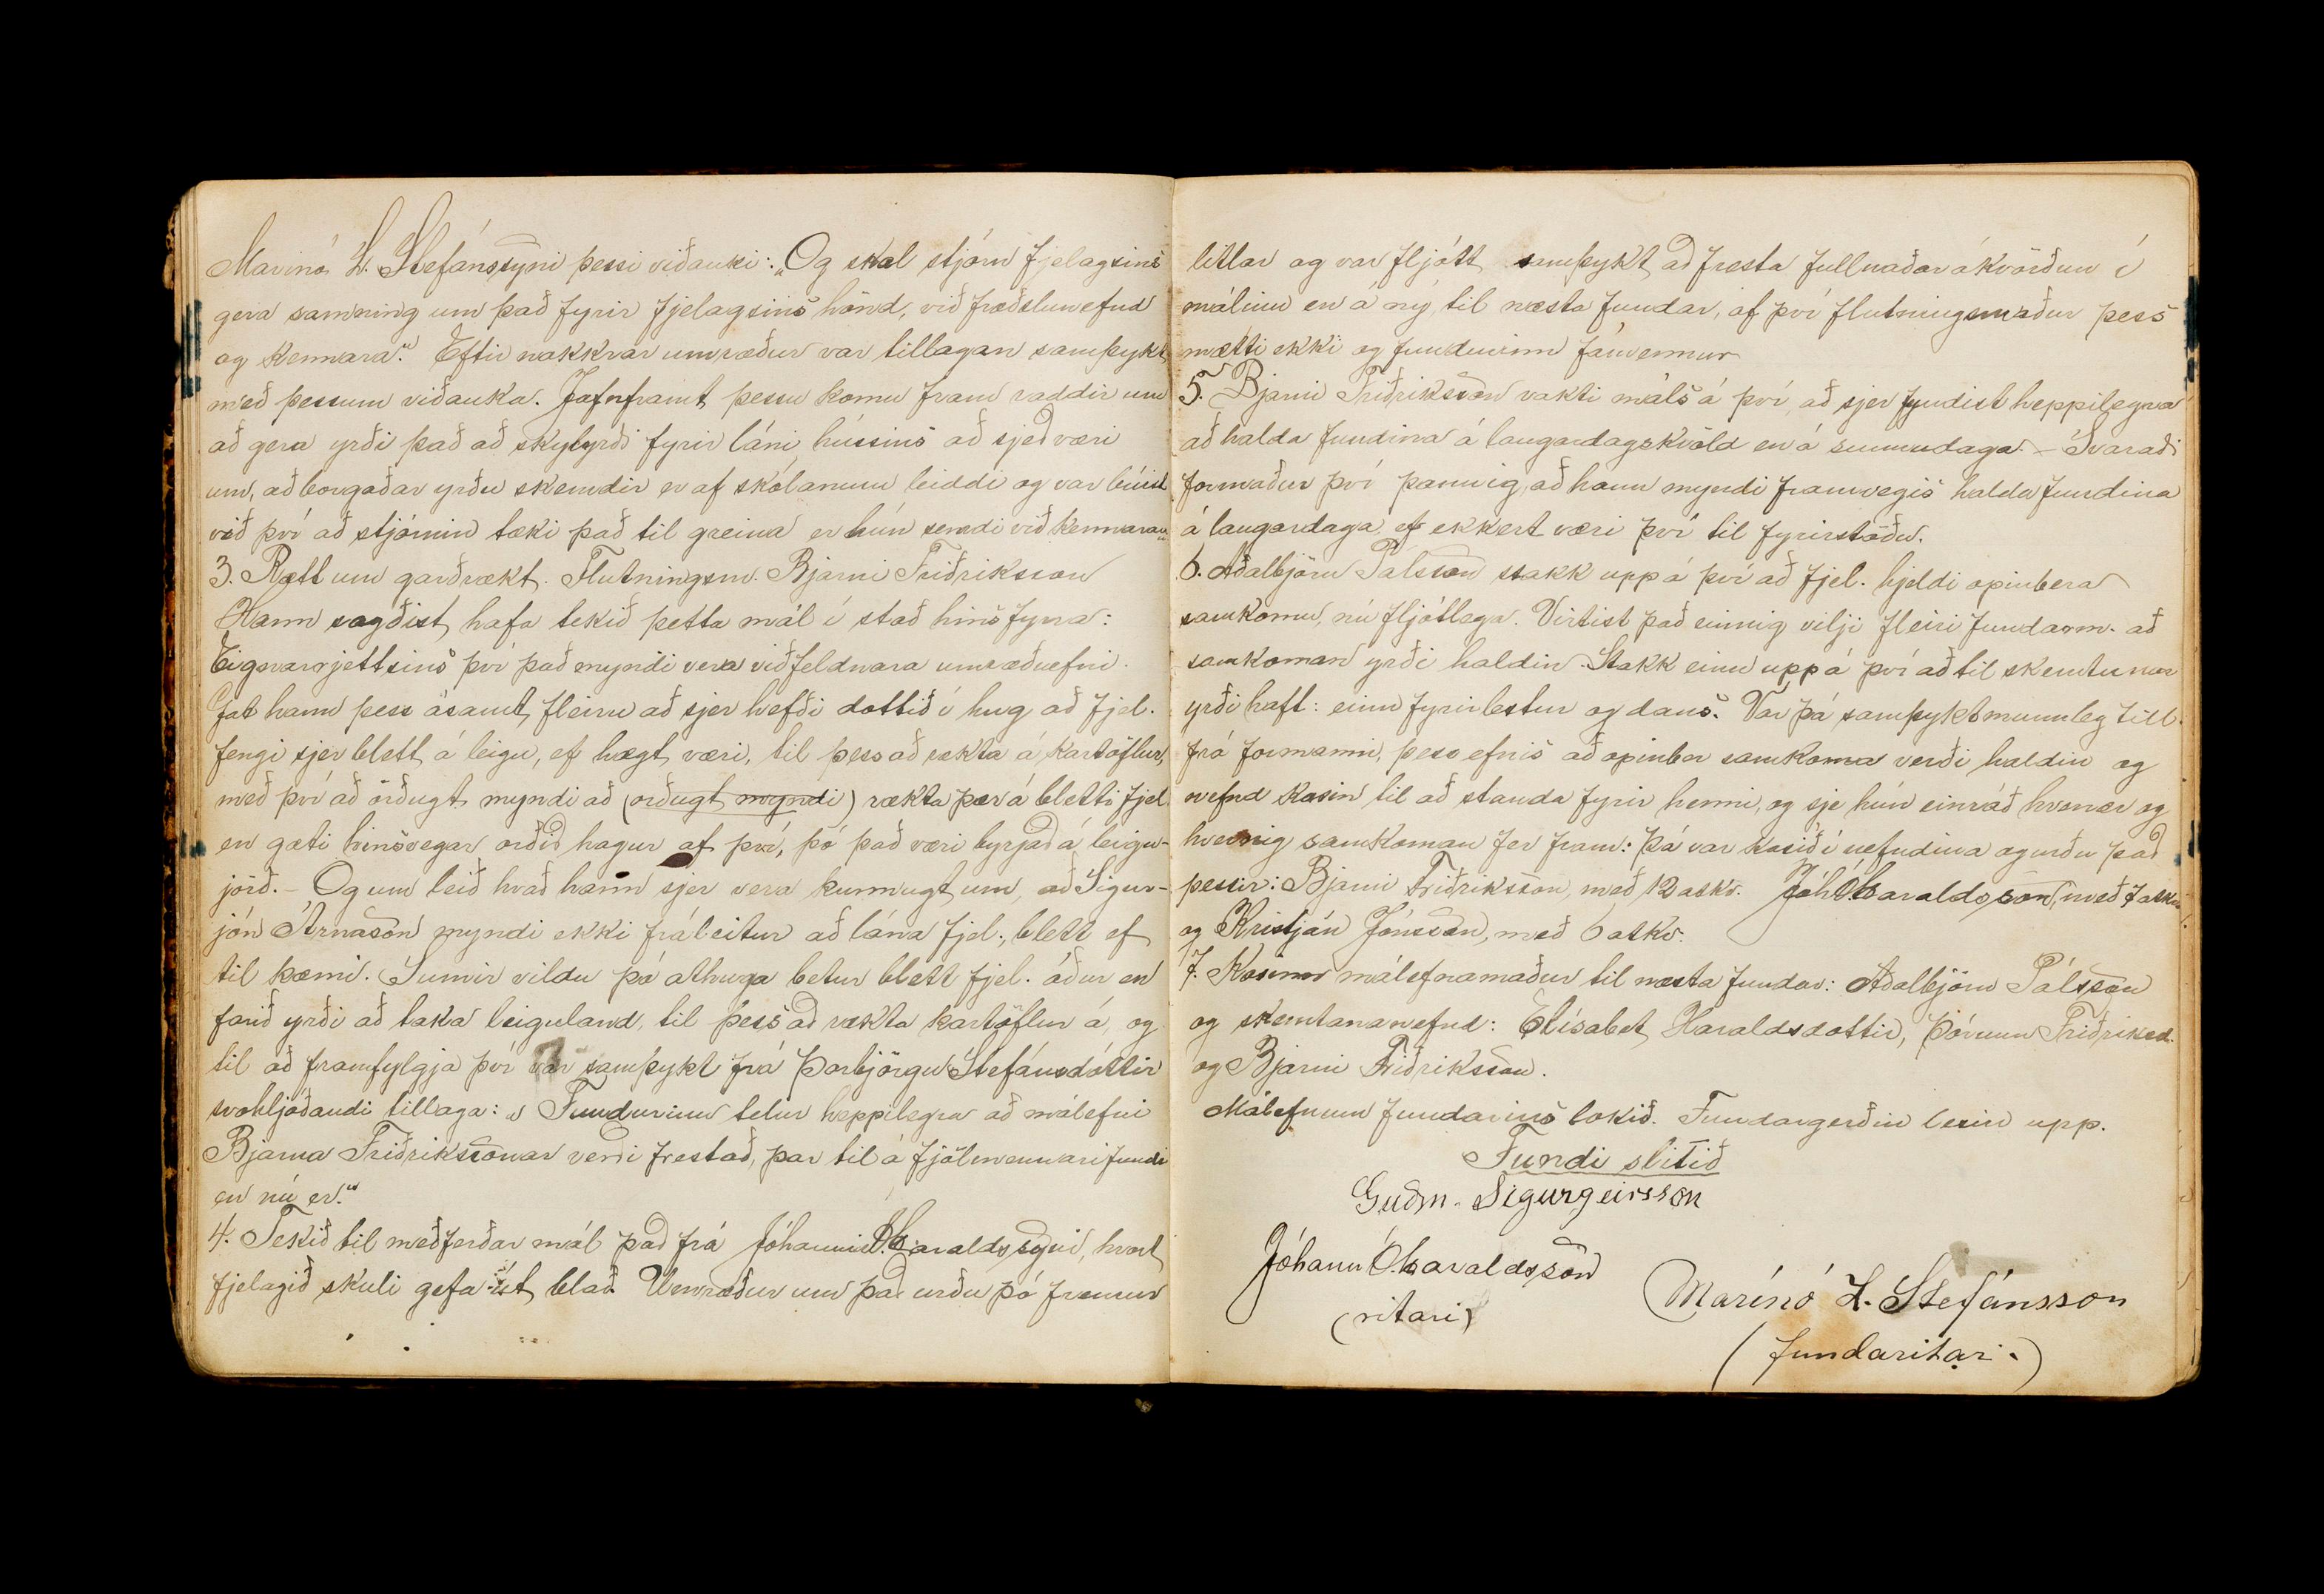 Marinó L. Stefánssyni þessi viðauki: „Og skal stjórn fjelagsins
gera samning um það fyrir fjelagsins hönd, við fræðslunefnd
og kennara." Eftir nokkrar umræður var tillagan samþykt
með þessum viðauka. Jafnframt þessu komu fram raddir um
að gera yrði það að skylyrði fyrir láni hússins að sjeð væri
um, að borgaðar yrðu skemdir er af skólanum leiddi og var búist
við því að stjórnin tæki það til greina er hún semdi við kennarann.
3. Rætt um garðrækt. Flutningsm. Bjarni Friðriksson
Hann sagðist hafa tekið þetta mál í stað hins fyrra:
Eignarrjettsins því það myndi vera viðfeldnara umræðuefni.
Gat hann þess ásamt fleiru að sjer hefði dottið í hug að fjel.
fengi sjer blett á leigu, ef hægt væri, til þess að rækta á kartöflur,
með því að örðugt myndi að (orðugt myndi) rækta þær á bletti fjel.
en gæti hinsvegar orðið hagur af því, þó það væri byrjað á leigu-
jörð. - Og um leið kvað hann sjer vera kunnugt um, að Sigur-
jón Árnason myndi ekki fráleitur að lána fjel., blett ef
til kæmi. Sumir vildu þó athuga betur blett fjel. áður en
farið yrði að taka leiguland, til þess að rækta kartöflur á, og
til að framfylgja því var samþykt frá Þorbjörgu Stefánsdóttir
svohljóðandi tillaga: „Fundurinn telur heppilegra að málefni
Bjarna Friðrikssonar verði frestað, þar til á fjölmennari fundi
en nú er."
4. Tekið til meðferðar mál það frá Jóhanni Ó. Haraldssyni, hvort
fjelagið skuli gefa út blað. Umræður um það urðu þó fremur
litlar og var fljótt samþykt að fresta fullnaðarákvörðun í
málinu en á ný til næsta fundar, af því flutningsmaður þess
mætti ekki og fundurinn fámennur
5. Bjarni Friðriksson vakti máls á því, að sjer fyndist heppilegra
að halda fundina á laugardagskvöld en á sunnudaga. - Svaraði
formaður því þannig, að hann myndi framvegis halda fundina
á laugardaga ef ekkert væri því til fyrirstöðu.
6. Aðalbjörn Pálsson stakk uppá því að fjel. hjeldi opinbera
samkomu, nú fljótlega. Virtist það einnig vilji fleiri fundarm. að
samkoman yrði haldin. Stakk einn uppá því að til skemtunar
yrði haft: einn fyrirlestur og dans. Var þá samþykt munnleg till.
frá formanni, þess efnis að opinber samkoma verði haldin og
nefnd kosin til að standa fyrir henni, og sje hún einráð hvenær og
hvernig samkoman fer fram: Þá var kosið í nefndina og urðu það
þessir: Bjarni Friðriksson, með 12 atkv. Jóh. Ó. Haraldsson, með 7 atkv.
og Kristján Jónsson, með 6 atkv.
7. Kosinn málefnamaður til næsta fundar: Aðalbjörn Pálsson
og skemtananefnd: Elísabet Haraldsdottir, Þórunn Friðriksd.
og Bjarni Friðriksson.
Málefnum fundarins lokið. Fundargerðin lesin upp.
Fundi slitið
Guðm. Sigurgeirsson
Jóhann Ó. Haraldsson
(ritari)
Marínó L. Stefánsson
(fundaritari.)